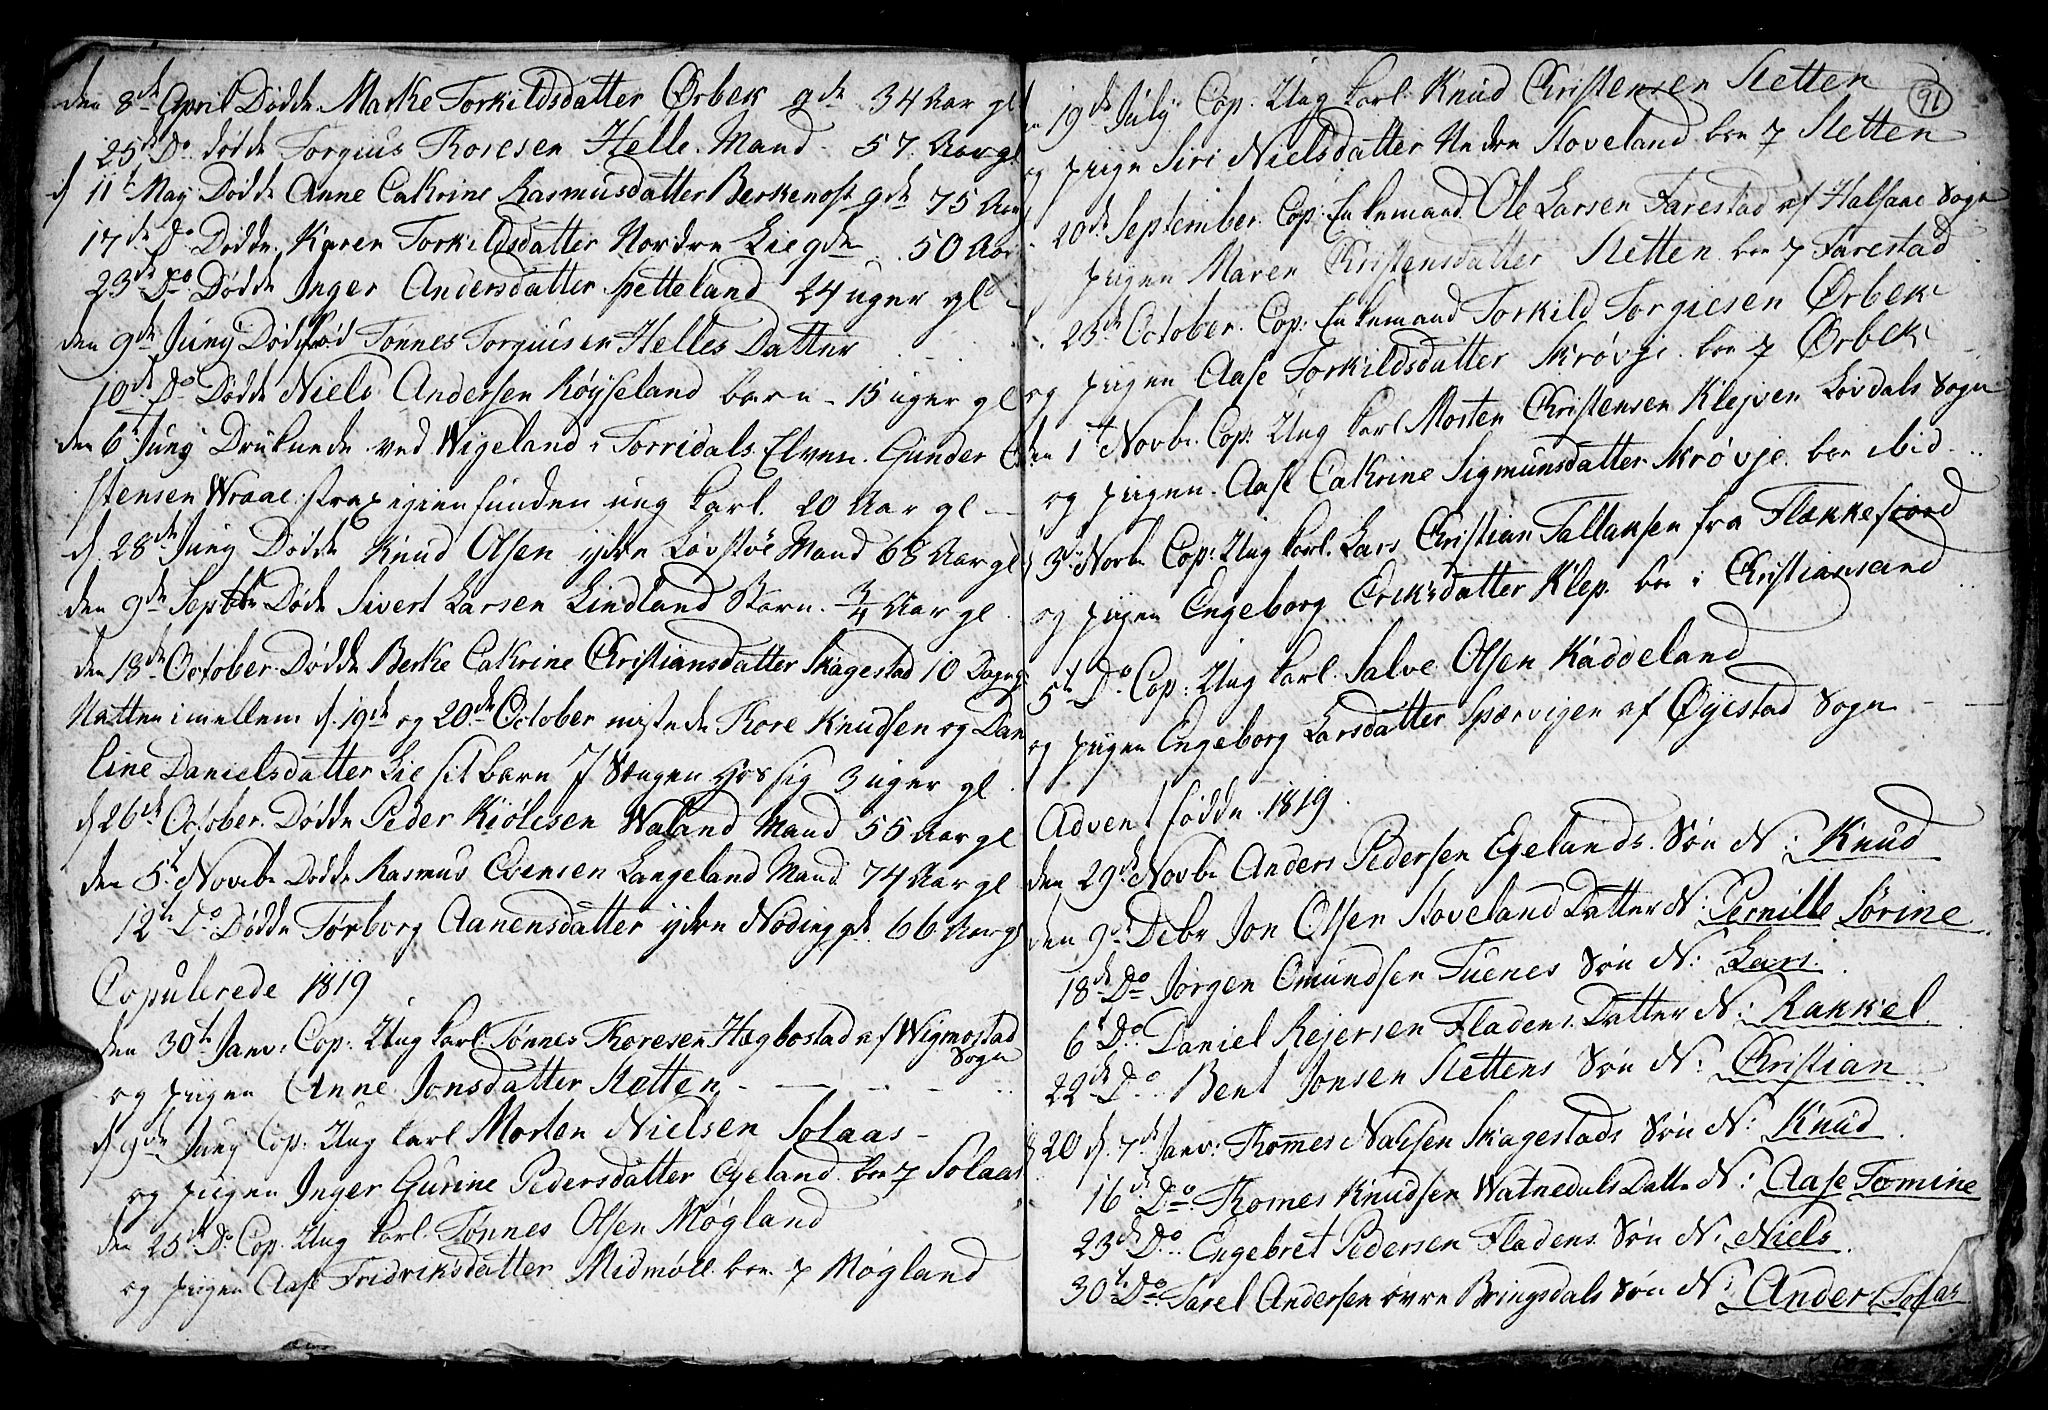 den 8de April Døde Marthe Torkildsdatter Ørbek gde 34 Aar gl
25de Do døde Torgius Thoresen Helle Mand 57 Aar gl
d 11te May Døde Anne Cathrine Rasmusdatter Berkenos gde 75 Aar
17de Do Døde Karen Torkildsdatter Nordre Lie gde 50 Aar
23de Do Døde Inger Andersdatter Spetteland 24 uger gl
den 9de Juny Dødfød Tønnes Torgiusen Helles Datter
10de Do Døde Niels Andersen Røysseland barn 15 uger gl
den 6te Juny Druknede ved Wigeland i Torridals Elven Gunder
stensen Wraae strax igien funden ung karl 20 Aar gl
d 28de Juny Døde Knud Olsen ydre Løvstøe Mand 68 Aar gl
den 9de Septbr Døde Sivert Larsen Lindland Barn 3/4 Aar gl
den 18de October Døde Berthe Cathrine Christiansdatter Skagestad 10 Dage
Natten imellem d 19de og 20de October mistede Thore Knudsen og Dan
line Danielsdatter Lie sit barn I Sængen hos sig 3 uger gl
d 26de October Døde Peder Kiølesen Waland Mand 55 Aar gl
den 5te Novbr Døde Rasmus Evensen Langeland Mand 74 Aar gl
12te Do Døde Torborg Aanensdatter ydre Nøding gde 66 Aar gl
Copulerede 1819
den 30te Janv: Cop: Ung karl Tønnes Thoresen Hægbostad af Wigmostad Sogn
og pigen Anne Jonsdatter Stetten
d 9de Juny Cop: Ung karl Morten Nielsen Solaas
og pigen Inger Gurine Pedersdatter Egeland boe I Solaas
den 25de Do Cop: Ung karl Tønnes Olsen Møgland
og pigen Aase Fridriksdatter Midmøll boe I Møgland
91
19de July Cop: Ung karl Knud Christensen Stetten
og pige Siri Nielsdatter Nedre Stoveland boe I Stetten
20de September Cop: Enkemand Ole Larsen Farestad af Halsaae Sogn
pigen Maren Christensdatter Stetten boe I Farestad
23de October Cop: Enkemand Torkild Torgiesen Ørbek
og pigen Aase Torkildsdatter Skrøvje boe I Ørbek
den 1te Novbr Cop: Ung karl Morten Christensen Klejven Løvdals Sogn
og pigen Aase Cathrine Sigmunsdatter Skrøvje boe ibid
3de Novbr Cop: Ung karl Lars Christian Tallaksen fra Flækkefiord
og pigen Engeborg Ericksdatter Klep boe i Christiansand
5te Do Cop: Ung karl Salve Olsen Kaddeland
og pigen Engeborg Larsdatter Spærvigen af Øyestad Sogn
Advent fødde 1819
den 29de Novbr Anders Pedersen Egelands Søn N: Knud
den 9de Debr Jon Olsen Stoveland Datter N: Pernille Sørine
18de Do Jørgen Omundsen Tuenes Søn N: Lars
6te Do Daniel Rejersen Fladens Datter N: Rakkel
22de Do Bent Jonsen Stettens Søn N: Christian
20 d 7de Janv: Thomes Nalsen Skagestads Søn N: Knud
16de Do Thomes Knudsen Watnedals Datter N: Aase Tomine
23de Do Engebret Pedersen Fladens Søn N: Niels
30te Do Sarel Andersen øvre Bringsdals Søn N: Ander Tobias